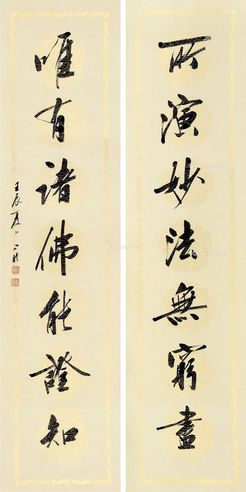 所演妙法無窮盡
唯有諸佛能證知
壬辰夏